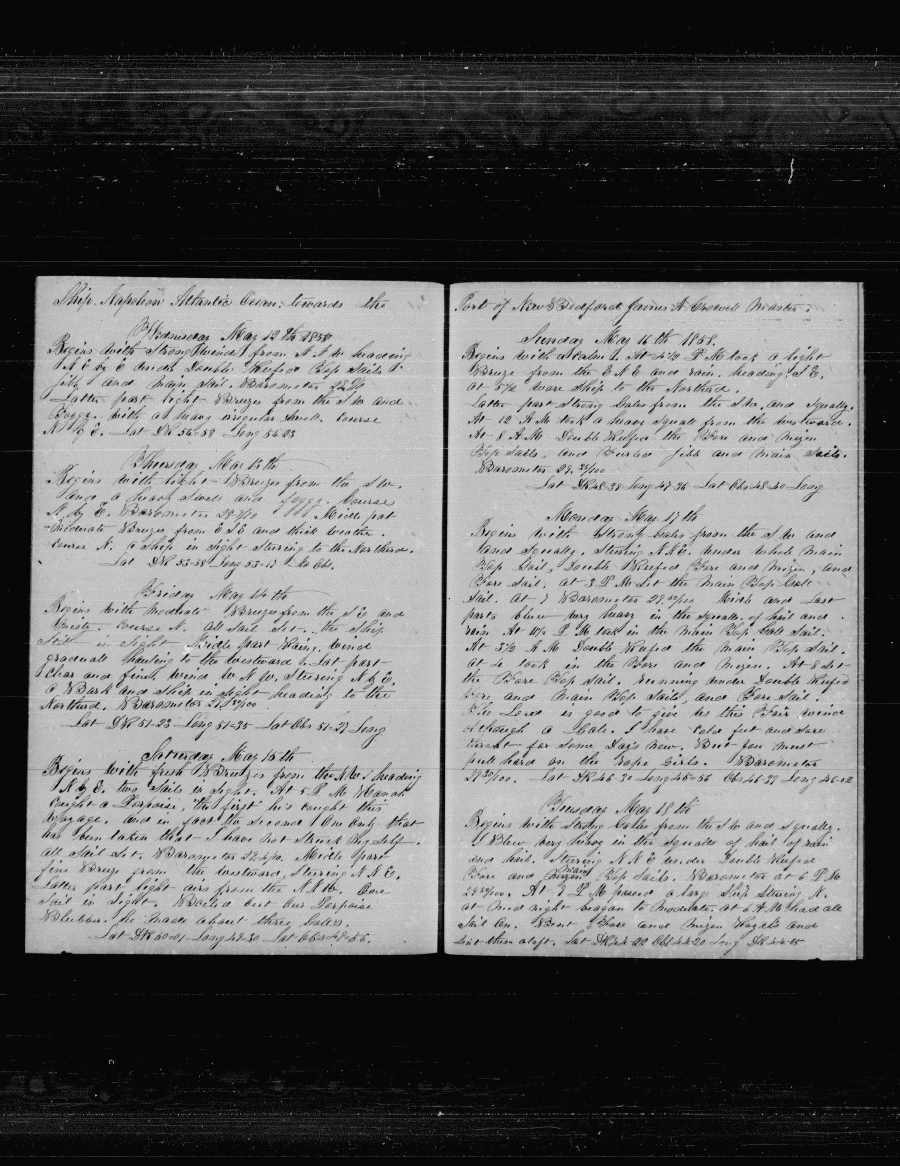 Ship Napoleon Atlantic Ocean: towards the
Wednesday May 12th 1858
Begins with Strong winds from S.S.W heading
N E by E under Double Reefed Top Sails
jibb and main Sail. Barometer
Latter part light Breezes from the S.W and
Foggy. with a heavy irregular Swell. Course
N by E. Lat DR 56-58 Long 54-23
Thursday May 13th
Begins with light Breezes from the S.W.
and a heavy Swell and foggy. Course
N. by E. Barometer Middle part
moderate Breezes from E S E and thick weather.
course N. a Ship in Sight Steering to the Northerd.
Lat DR 53-58 Long 53-17 No Obs.
Friday May 14th
Begins with moderate Breezes from the S E and
Misty. Course N. All Sail Set. the Ship
Still in Sight Middle part Rainy, wind
graduall hauling to the westward Lat part
Clear and fine wind W N W. Steering N by E.
a Bark and Ship in sight heading to the
Northerd. Barometer
Lat DR 51-23 Long 51-35 Lat Obs 51-27 Long
Saturday May 15th
Begins with fresh Breezes from the NW heading
N by E. two Sails in Sight. At 5 P M
caught a Porpoise, the first he's caught this
Voyage. and in fact the Second One only that
has been taken that I have not Struck myself.
all Sail Set. Barometer Middle part
fine Breeze from the westward, Steering N N E.
Latter part light airs from the N N W. One
Sail in Sight. Boiled out Our Porpoise
Blubber. he made about three Gallons.
Lat DR 50-01 Long 49-30 Lat Obs 49-56.
Port of New Bedford James A. Crowell Master.
Sunday May 16th 1858.
Begins with a Calm. At 4½ P M took a light
Breeze from the E N E and rain. heading S E.
at 5½ wore ship to the Northerd.
Latter part Strong Gales from the S.W. and Squally.
At 12 A M took a heavy Squall from the westward.
At 8 A M Double Reefed the Fore and Mizen
Top Sails. and Furled Jibb and Main Sails.
Barometer 29.
Lat DR 48-38 Long 47-36 Lat Obs 48-40 Long
Monday May 17th
Begins with Strong Gales from the S W and
and Squally. Steering N N E. under whole Main
Top Sail, Double Reefed Fore and Mizen, and
Fore Sail. at 3 P M Set the Main Top Gall
Sail. At 7 Barometer Midle and Last
parts blew very heavy in the squalls of hail and
rain At 10½ P. M. took in the Main Top Gall Sail.
At 3½ A M Double Reefed the Main Top Sail.
at 4 took in the Fore and Mizen. At 8 Set
the Fore Top Sail. running under Double Reefed
Fore and Main Top Sails, and Fore Sail.
The Lord is good to give us this Fair wind
although a Gale. I have Cold feet and Sore
throat for Some Days now. But you must
pull hard on the rope Girls. Barometer
Lat DR 46-30 Long 45-56 Obs 46-33 Long 46-12
Tuesday May 18th
Begins with Strong Gales from the S W and Squally.
Blew very heavy in the squalls of hail of rain
and hail. Steering N N E under Double Reefed
Fore and Main Top Sails. Barometer at 6 P M
At 9 P M passed a large Ship Steering N.
at Mid night began to moderate, at 6 A M had all
Sail On. Bent Fore and Mizen Royals and
Sent them aloft. Lat DR 44-22 Obs 44-20 Long DR 44-15